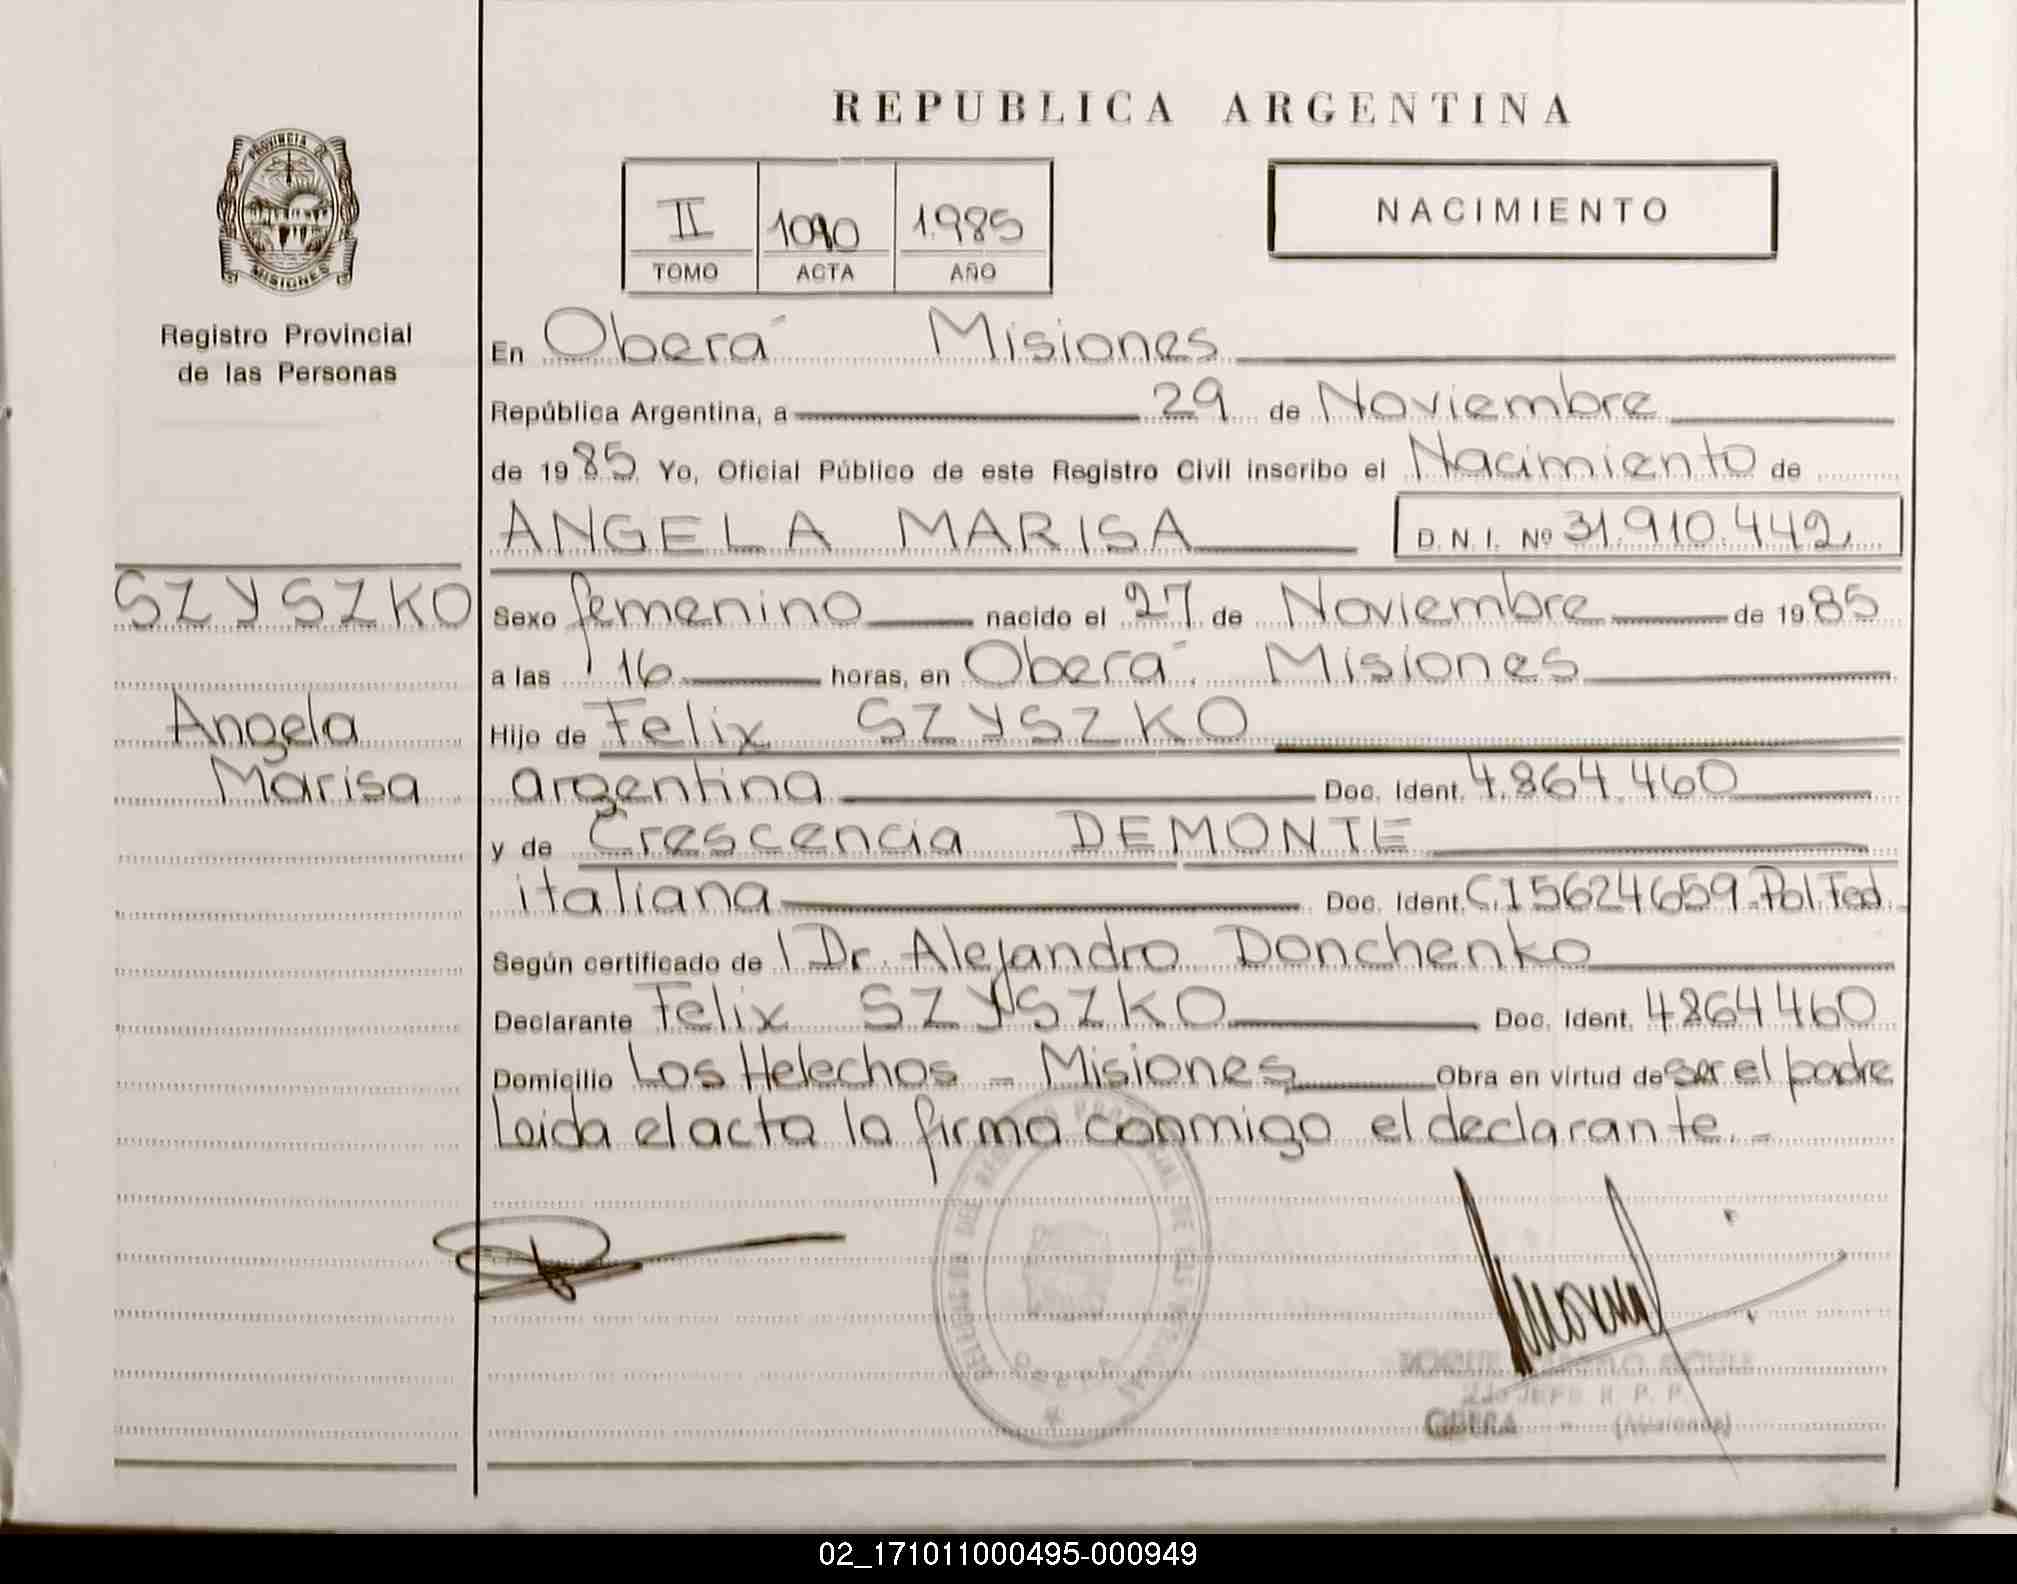 REPUBLICA ARGENTINA
PROVINCIA DE
MISIONES
Registro Provincial
de las Personas
II 1090 1.985
TOMO ACTA AÑO
NACIMIENTO
En Oberá Misiones
República Argentina, a 29 de Noviembre
de 1985 Yo, Oficial Público de este Registro Civil inscribo el Nacimiento de
ANGELA MARISA D.N.I. Nº 31.910.442
SZYSZKO
Angela
Marisa
Sexo femenino nacido el 27 de Noviembre de 1985
a las 16 horas, en Oberá Misiones
Hijo de Felix SZYSZKO
argentina Doc. Ident. 4.864.460
y de Crescencia DEMONTE
italiana Doc. Ident. C.I 5624659 Pol. Fed.
Según certificado de Dr. Alejandro Donchenko
Declarante Felix SZYSZKO Doc. Ident. 4864460
Domicilio Los Helechos - Misiones Obra en virtud de ser el padre
Leida el acta la firma conmigo el declarante. -
2do JEFE R. P. P.
OBERA - (Misiones)
02_171011000495-000949